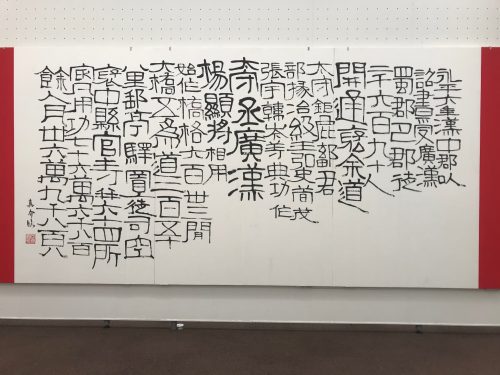 永平六年漢中郡以
詔書受廣漢
蜀郡巴郡徒
二千六百九十人
開通褒余道
太守鉅鹿鄐君
部掾治級王弘史荀茂
張宇韓岑等典功作
太守丞廣漢
楊顯將相用
始作橋格六百卅三間
大橋五為道二百五十
八里郵亭驛置徒司空
褒中縣官寺并六十四所
凡用功七十六萬六千八百
餘人瓦卅六萬九千八百